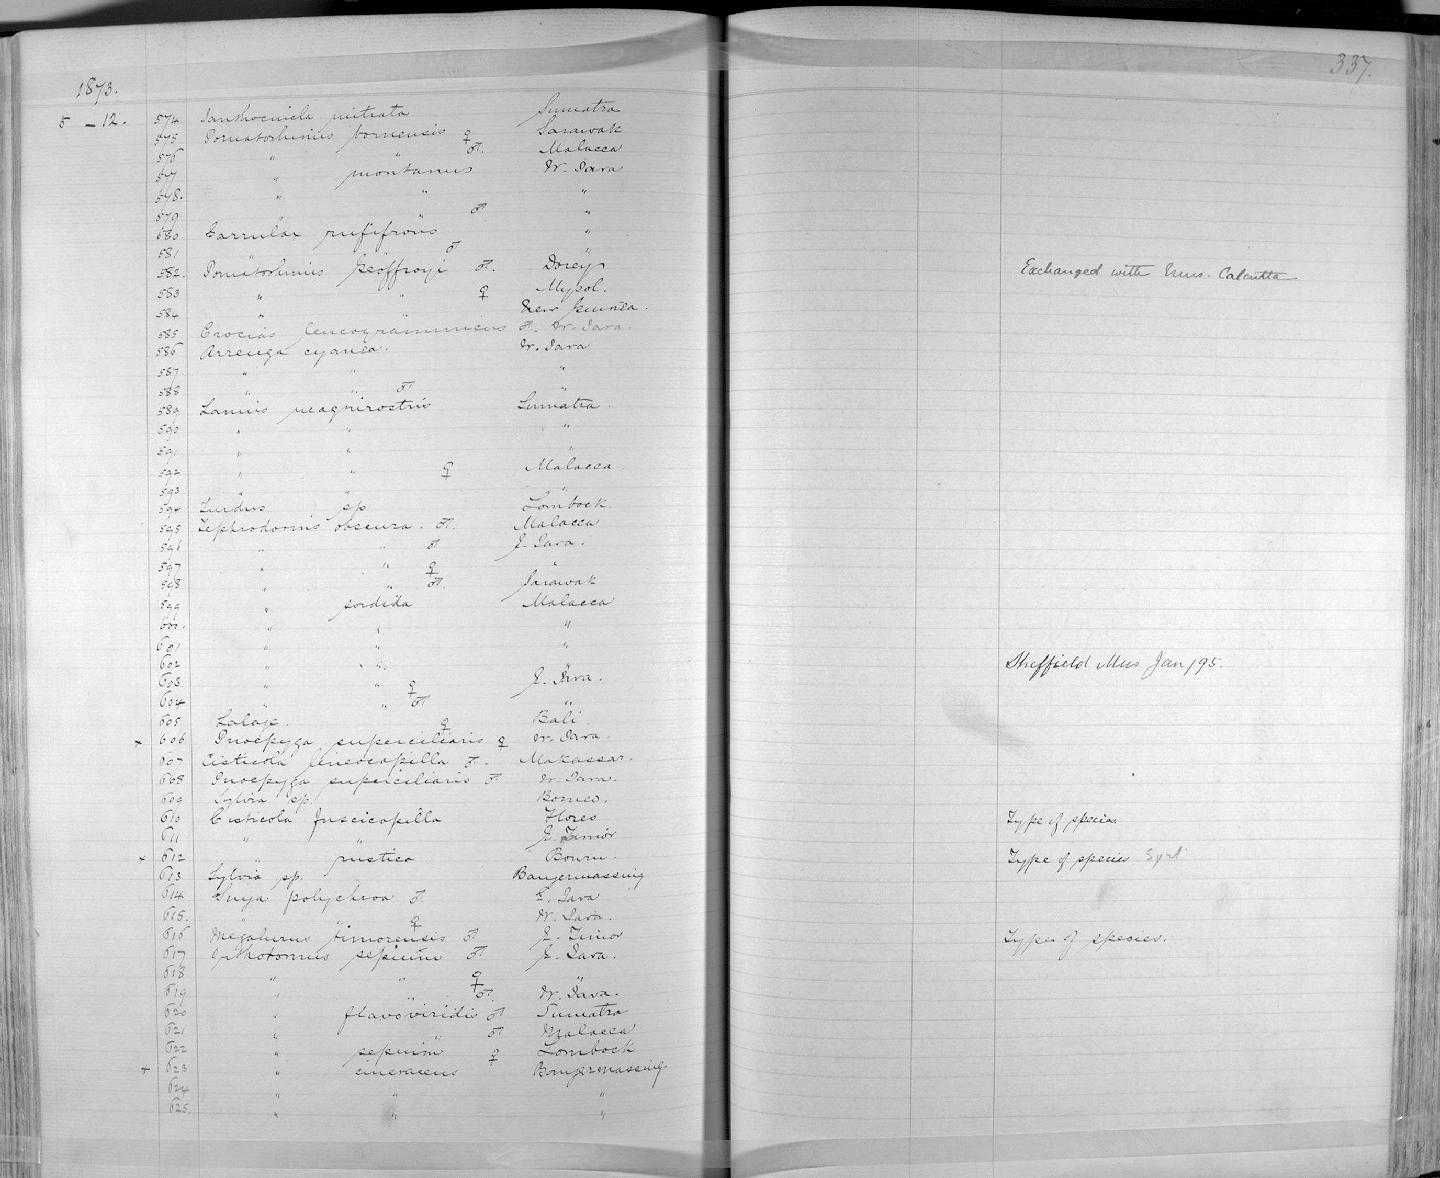 337.
1873.
5 - 12. 574 Ianthocincla mitrata Sumatra
575 Pomatorhinus bornensis ♀ Sarawak
576 " " ♂. Malacca
577 " montanus W. Java
578. " " "
579 " " ♂ "
580 Garrulax rufifrons "
581 ♂ "
582. Pomatorhinus geoffroyi ♂. Dorey Exchanged with Mus. Calcutta
583 " " ♀ Mysol.
584 " New Guinea.
585 Crocias leucogrammicus ♂. W. Java.
586 Arrenga cyanea. W. Java
587 " " "
588 " " ♂ "
589 Lanius magnirostris Sumatra.
590 " " "
591 " " "
592 " " ♀ Malacca.
593 " " "
594 Turdus sp Lombock.
595 Tephrodornis obscura. ♂. Malacca
596 " " ♂ E. Java.
597 " " ♀ "
598 " " ♂. Sarawak
599 " sordida Malacca
600. " " "
601 " " "
602 " " " Sheffield Mus Jan/95.
603 " " ♀ E. Java.
604 " " ♂ "
605 Lalage. ♀ Bali.
x 606 Pnoepyga superciliaris ♀ W. Java.
607 Cisticola lineocapilla ♂. Makassar.
608 Pnoepyga superciliaris ♂ W. Java.
609 Sylvia sp. Borneo.
610 Cisticola fuscicapilla Flores Type of species.
611 " " E. Timor
x 612 " rustica Bouru. Type of species
613 Sylvia sp. Banjermassing
614 Suya polychroa ♂ E. Java
615. " " ♀ W. Java.
616 Megalurus timorensis ♂ E. Timor Type of species.
617 Orthotomus sepium ♂ E. Java.
618 " " ♀ "
619 " " ♂. W. Java.
620 " flavoviridis ♂ Sumatra
621 " " ♂ Malacca
622 " sepium ♀ Lombock
x 623 " cineraceus Banjermassing
624 " " "
625. " " "